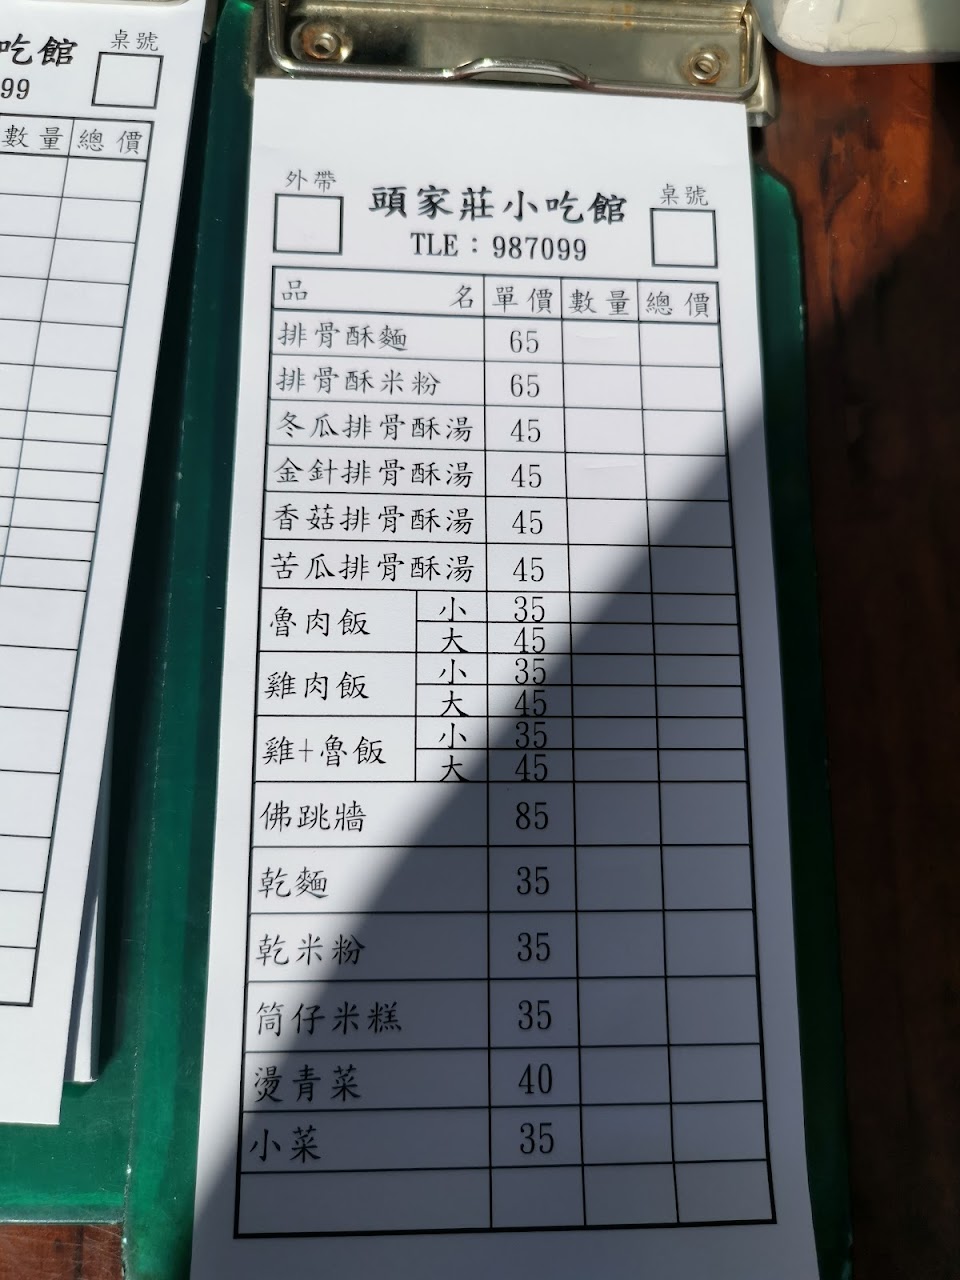 吃館
桌號
99
數量 總價
外帶
頭家莊小吃館
桌號
TLE：987099
品名 單價 數量 總價
排骨酥麵 65
排骨酥米粉 65
冬瓜排骨酥湯 45
金針排骨酥湯 45
香菇排骨酥湯 45
苦瓜排骨酥湯 45
魯肉飯 小 35
大 45
雞肉飯 小 35
大 45
雞+魯飯 小 35
大 45
佛跳牆 85
乾麵 35
乾米粉 35
筒仔米糕 35
燙青菜 40
小菜 35